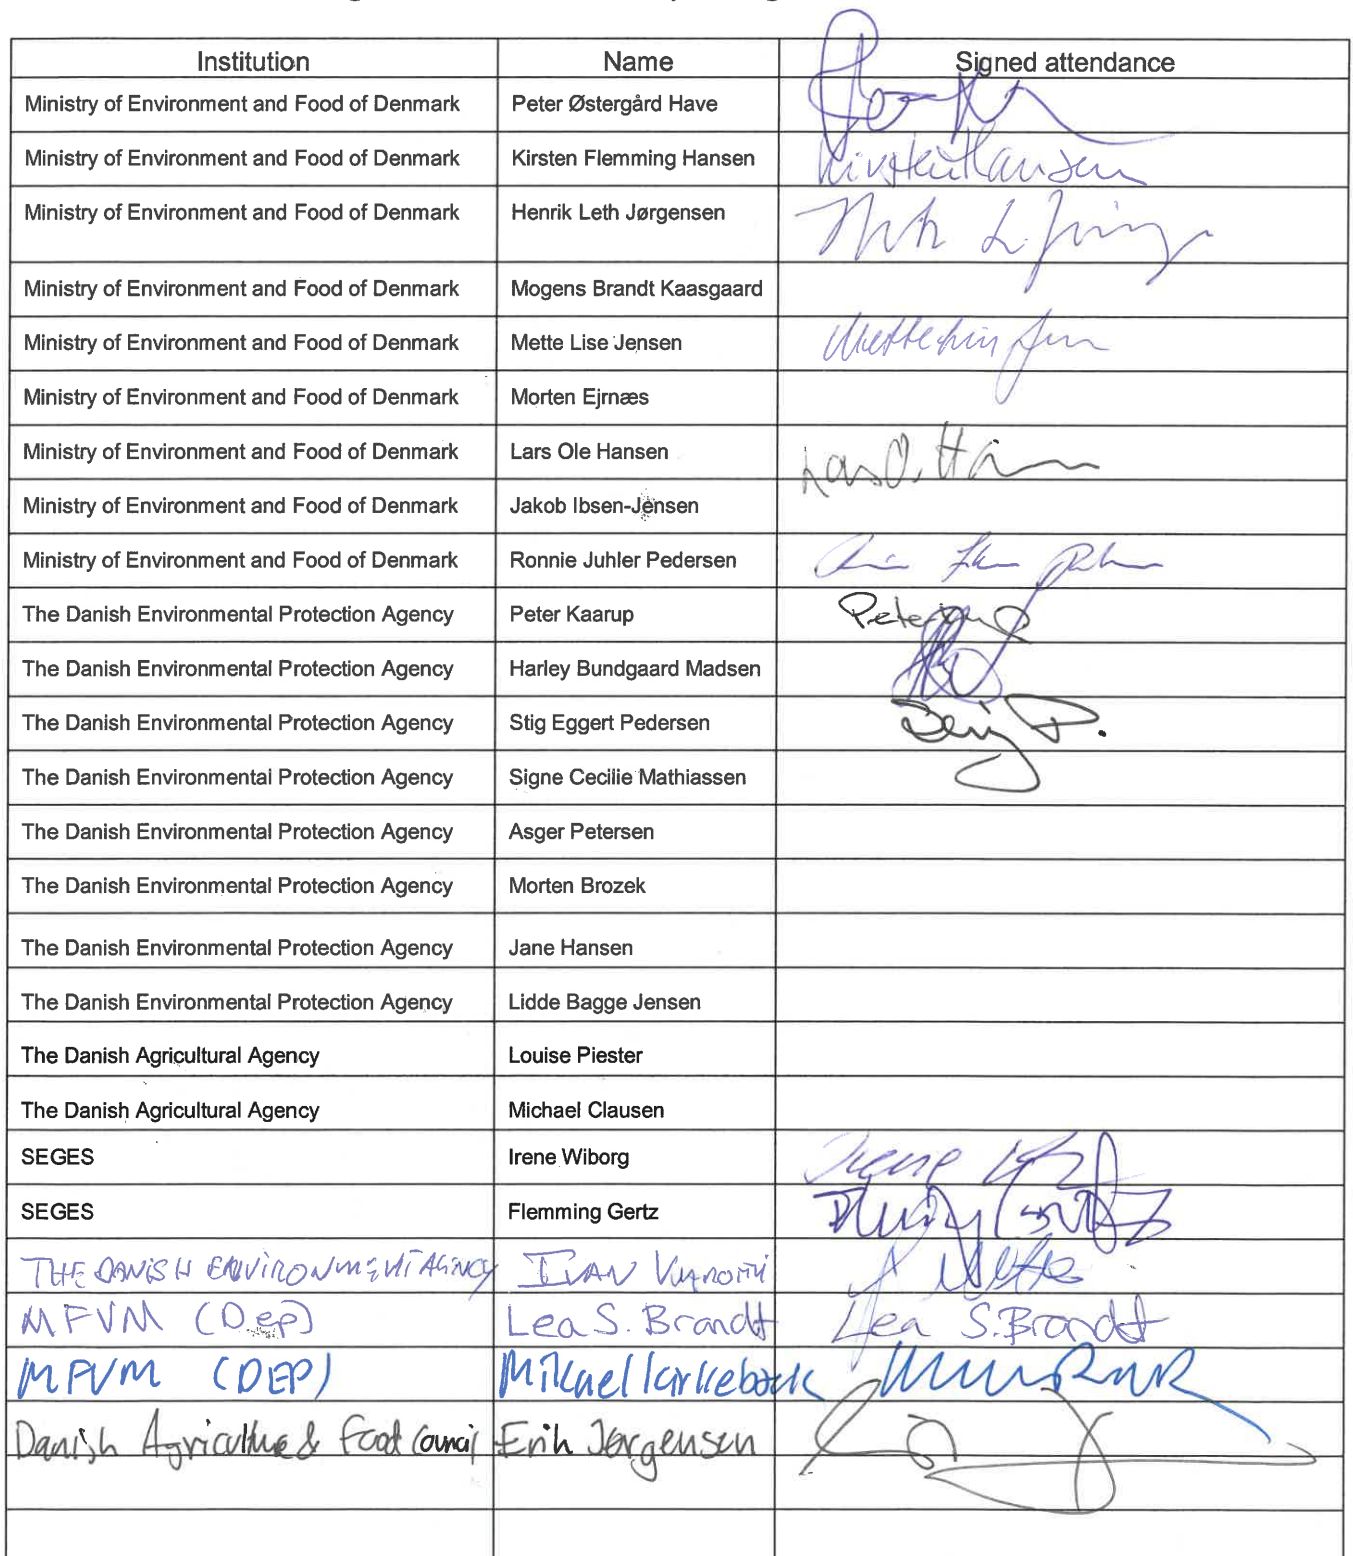 Institution Name Signed attendance
Ministry of Environment and Food of Denmark Peter Østergård Have
Ministry of Environment and Food of Denmark Kirsten Flemming Hansen Kirsten Hansen
Ministry of Environment and Food of Denmark Henrik Leth Jørgensen
Ministry of Environment and Food of Denmark Mogens Brandt Kaasgaard
Ministry of Environment and Food of Denmark Mette Lise Jensen
Ministry of Environment and Food of Denmark Morten Ejrnæs
Ministry of Environment and Food of Denmark Lars Ole Hansen
Ministry of Environment and Food of Denmark Jakob Ibsen-Jensen
Ministry of Environment and Food of Denmark Ronnie Juhler Pedersen
The Danish Environmental Protection Agency Peter Kaarup
The Danish Environmental Protection Agency Harley Bundgaard Madsen
The Danish Environmental Protection Agency Stig Eggert Pedersen
The Danish Environmental Protection Agency Signe Cecilie Mathiassen
The Danish Environmental Protection Agency Asger Petersen
The Danish Environmental Protection Agency Morten Brozek
The Danish Environmental Protection Agency Jane Hansen
The Danish Environmental Protection Agency Lidde Bagge Jensen
The Danish Agricultural Agency Louise Piester
The Danish Agricultural Agency Michael Clausen
SEGES Irene Wiborg Irene
SEGES Flemming Gertz
THE DANISH AGENCY IVAN
MFVM (Dep) Lea S. Brandt Lea S. Brandt
MFVM (DEP) Mikael Kirkebæk
Danish Agriculture & Food Council Erik Jørgensen